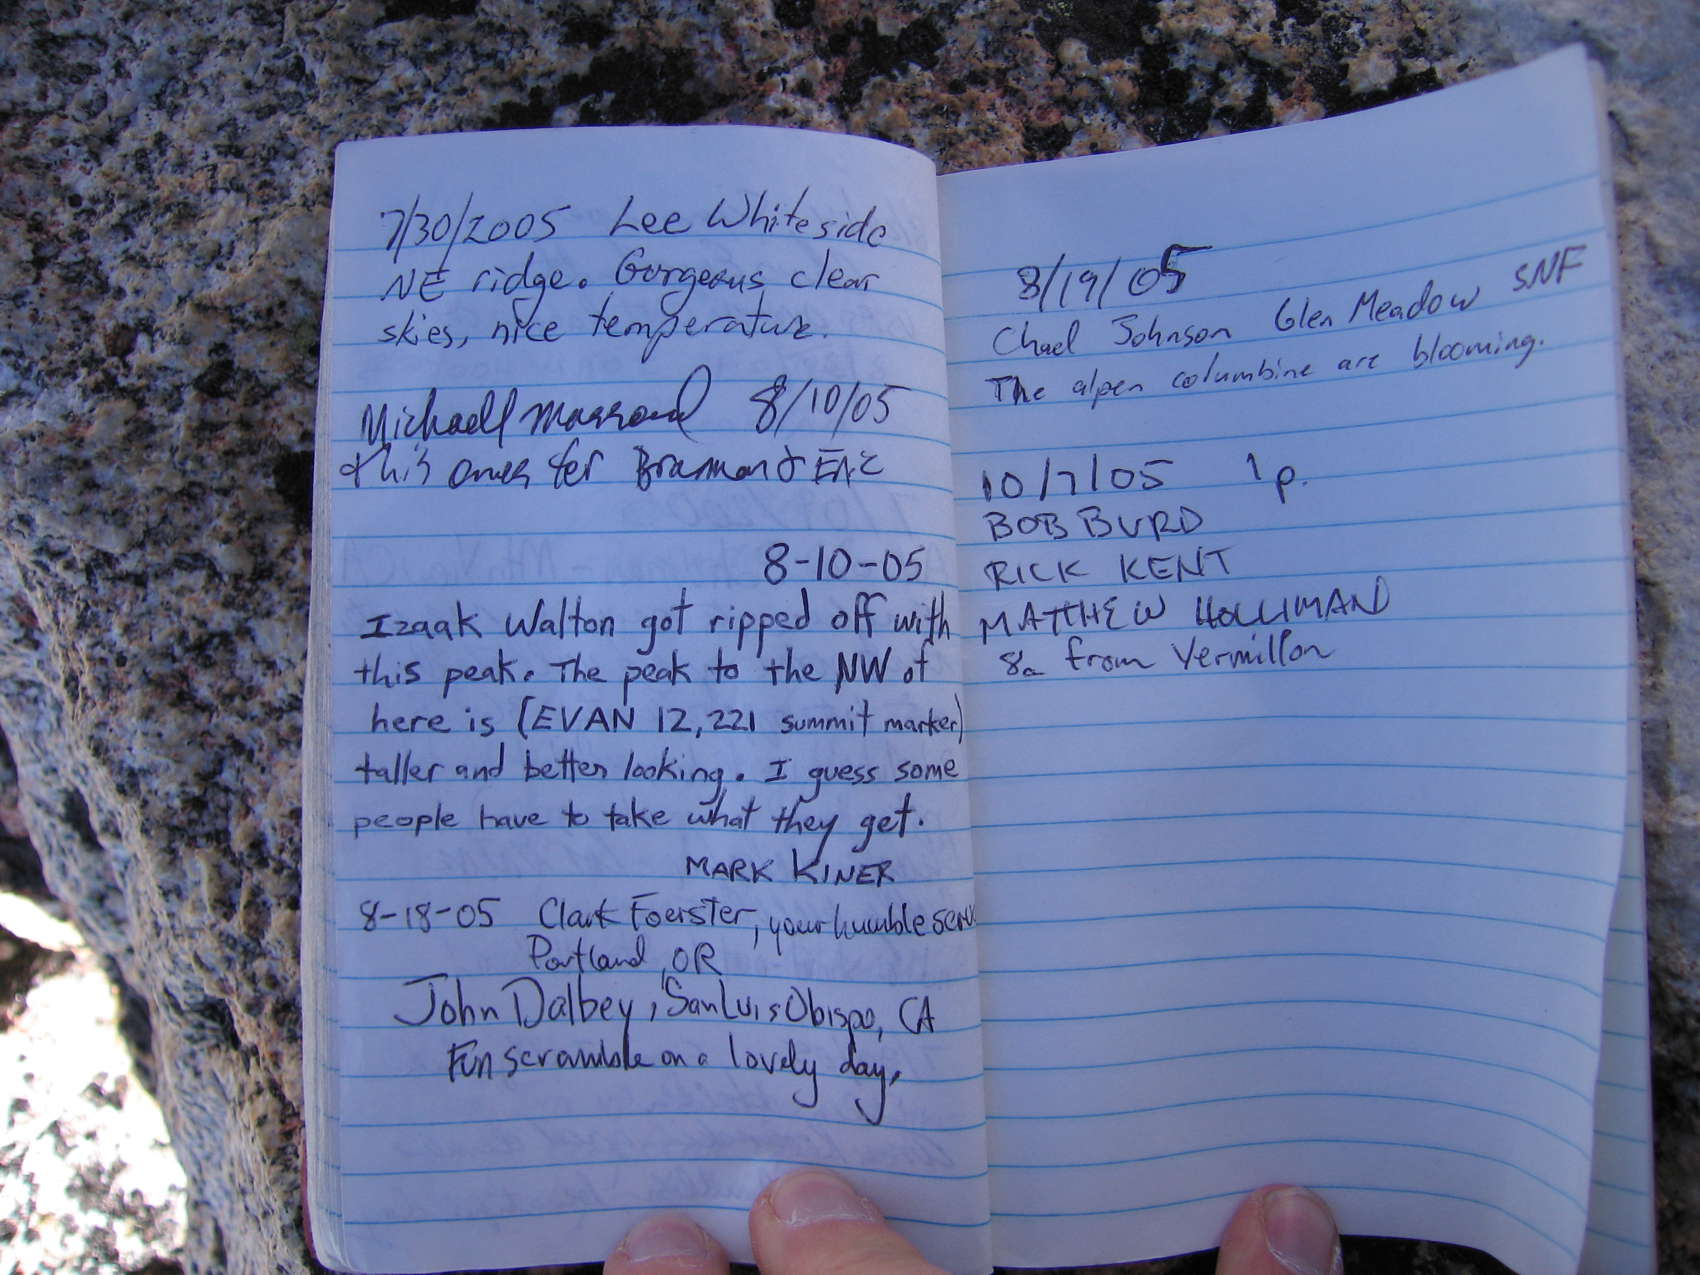 7/30/2005 Lee Whiteside
NE ridge. Gorgeous clear
skies, nice temperature.
Michaell 8/10/05
this ones for &
8-10-05
Izaak Walton got ripped off with
this peak. The peak to the NW of
here is (EVAN 12,221 summit marker)
taller and better looking. I guess some
people have to take what they get.
MARK KINER
8-18-05 Clark Foerster, your humble serv
Portland, OR
John Dalbey, San Luis Obispo, CA
Fun scramble on a lovely day.
8/19/05
Chad Johnson Glen Meadow SNF
The alpen columbine are blooming.
10/7/05 1p.
BOB BURD
RICK KENT
MATTHEW HOLLIMAN
8a from Vermillon